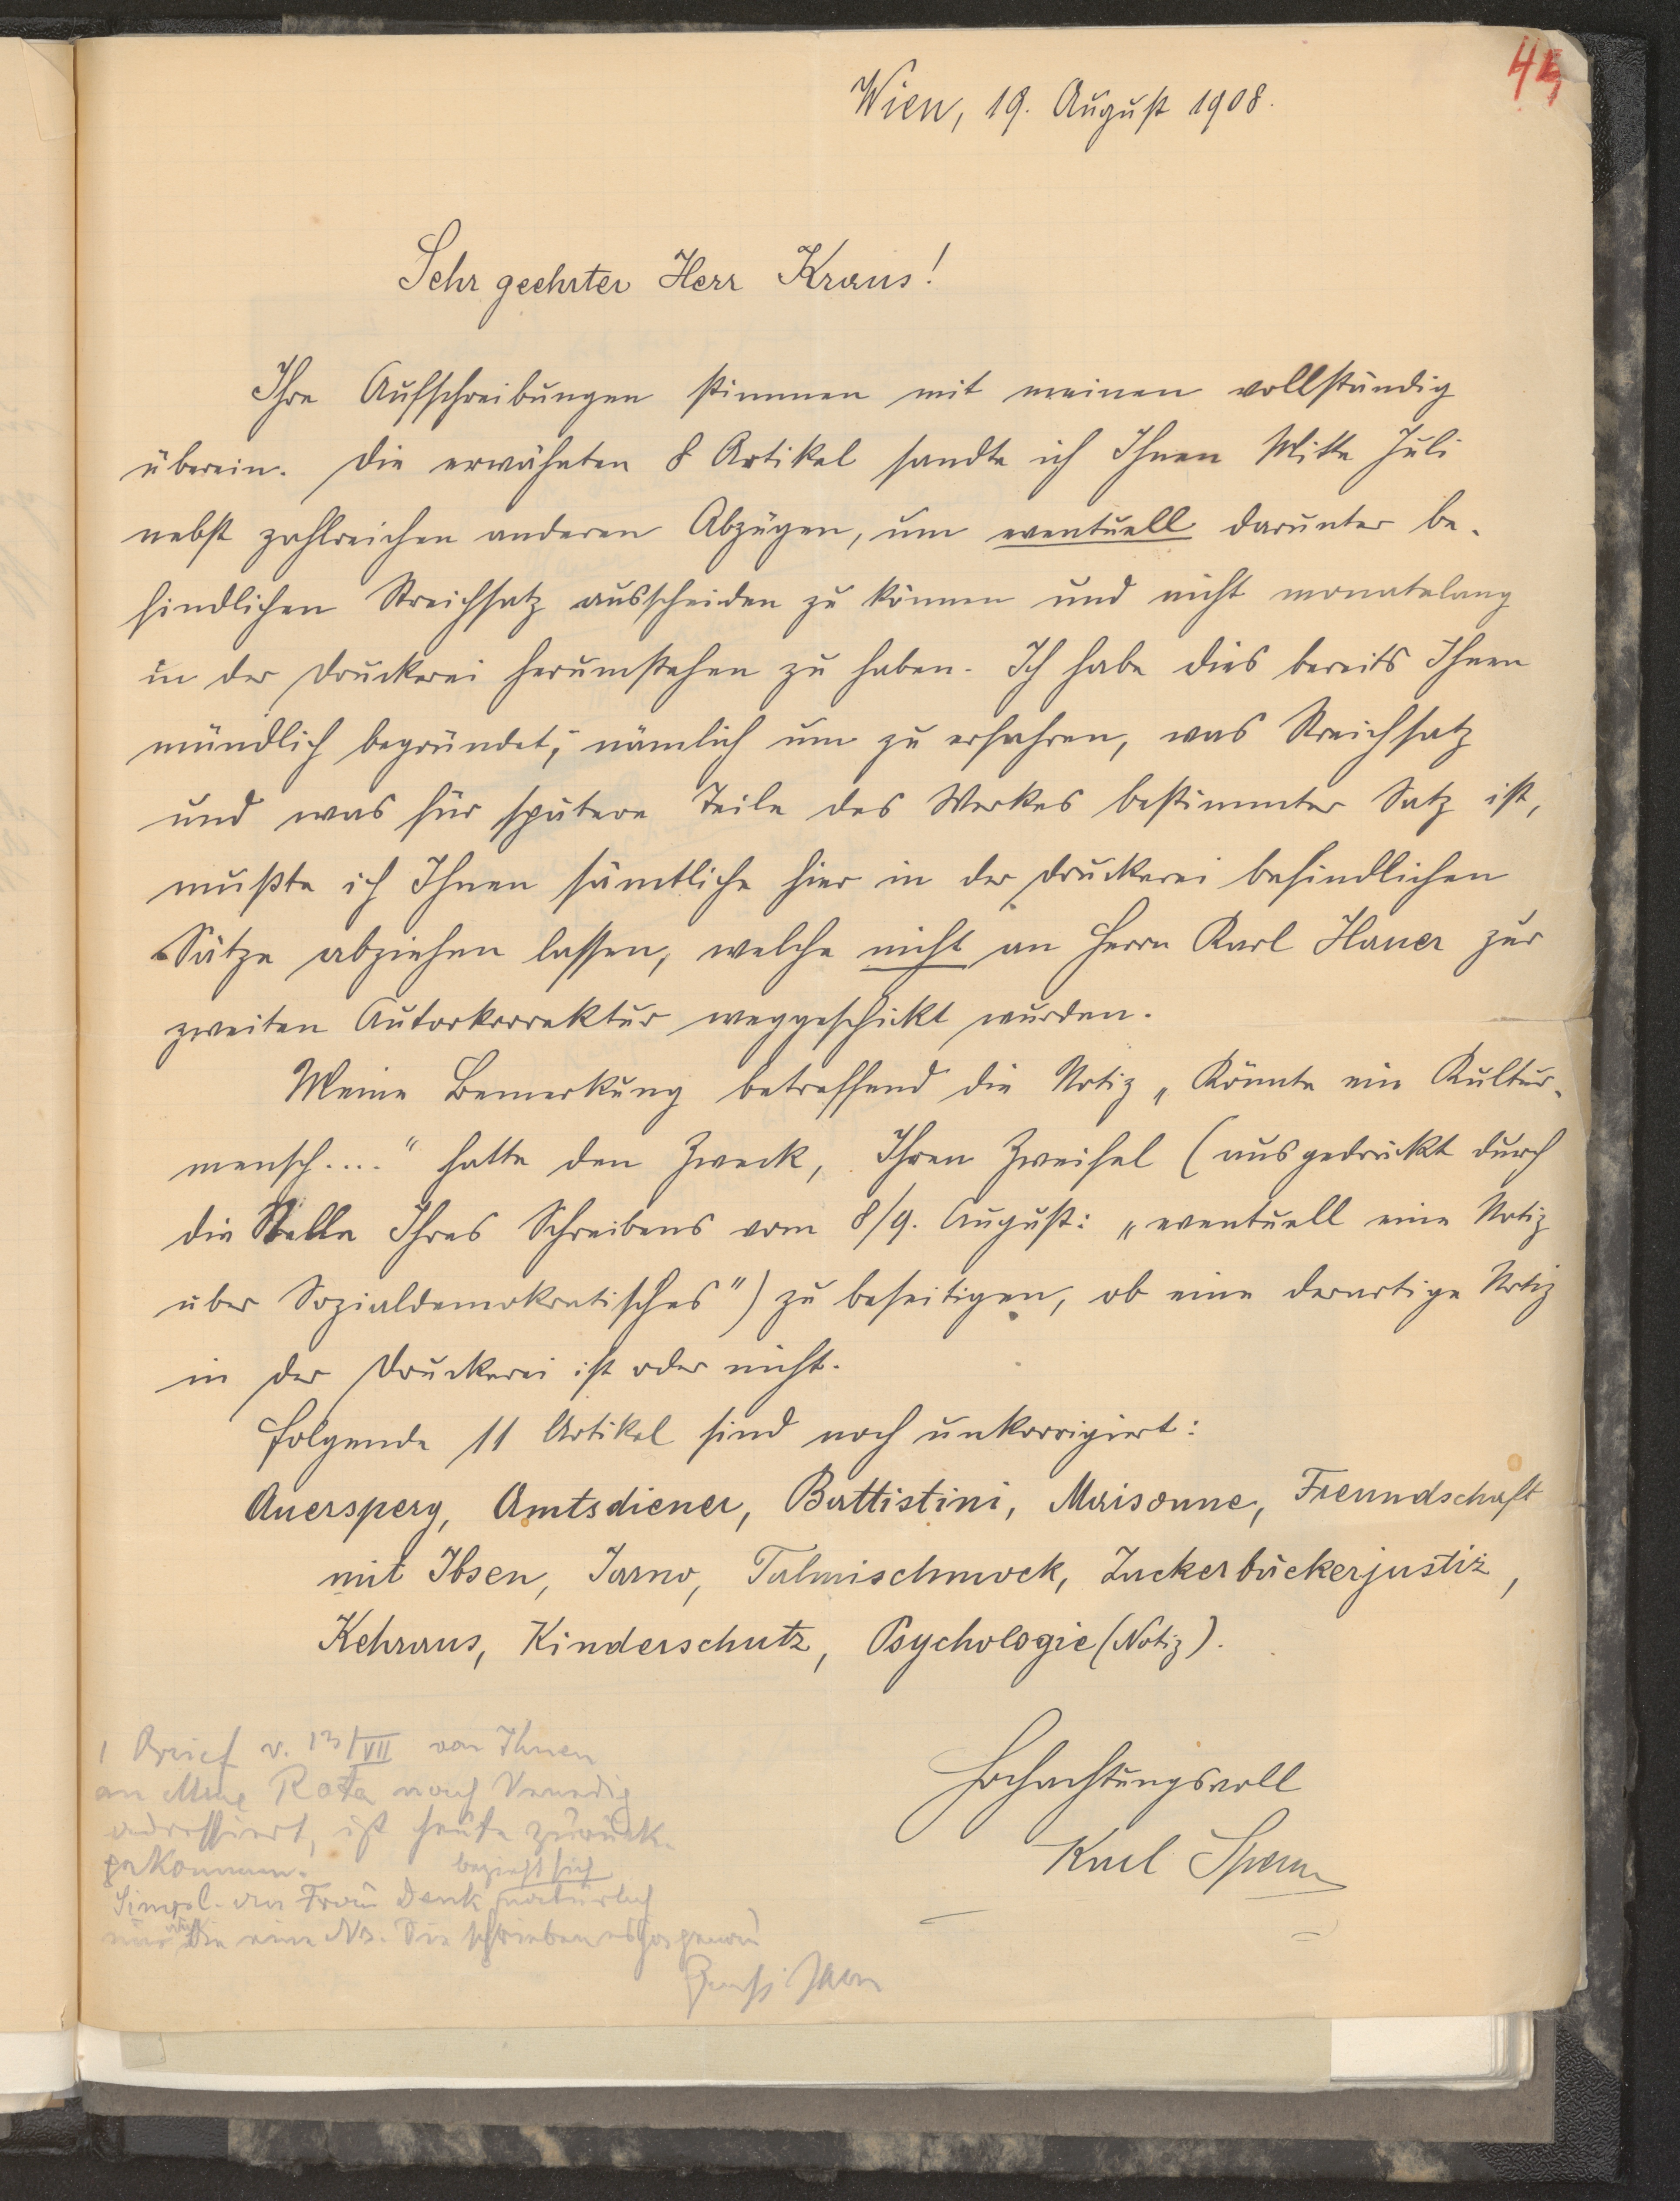 44
Wien, 19. August 1908.
Sehr geehrter Herr Kraus!
Ihre Aufschreibungen stimmen mit meinen vollständig
überein. Die erwähnten 8 Artikel sandte ich Ihnen Mitte Juli
nebst zahlreichen anderen Abzügen, um eventuell darunter be-
findlichen Streichsatz ausscheiden zu können und nicht monatelang
in der Druckerei herumstehen zu haben. Ich habe dies bereits Ihnen
mündlich begründet; nämlich um zu erfahren, was Streichsatz
und was für spätere Teile des Werkes bestimmter Satz ist,
mußte ich Ihnen sämtliche hier in der Druckerei befindlichen
Sätze abziehen lassen, welche nicht an Herrn Karl Hauer zur
zweiten Autorkorrektur weggeschickt wurden.
Meine Bemerkung betreffend die Notiz „Könnte ein Kultur-
mensch...." hatte den Zweck, Ihren Zweifel (ausgedrückt durch
die Stelle Ihres Schreibens vom 8/9. August: „eventuell eine Notiz
über Sozialdemokratisches") zu beseitigen, ob eine derartige Notiz
in der Druckerei ist oder nicht.
Folgende 11 Artikel sind noch unkorrigiert:
Auersperg, Amtsdiener, Battistini, Maisonne, Freundschaft
mit Ibsen, Jarno, Talmischmock, Zuckerbäckerjustiz,
Kehraus, Kinderschutz, Psychologie (Notiz).
Hochachtungsvoll
Karl
1 Brief v. 13/VII von Ihnen
an Mme Rota nach Venedig
adressiert, ist heute zurück-
gekommen.
bezieht sich
Simpl. an Frau Denk natürlich
nur die eine No. Sie schrieben es